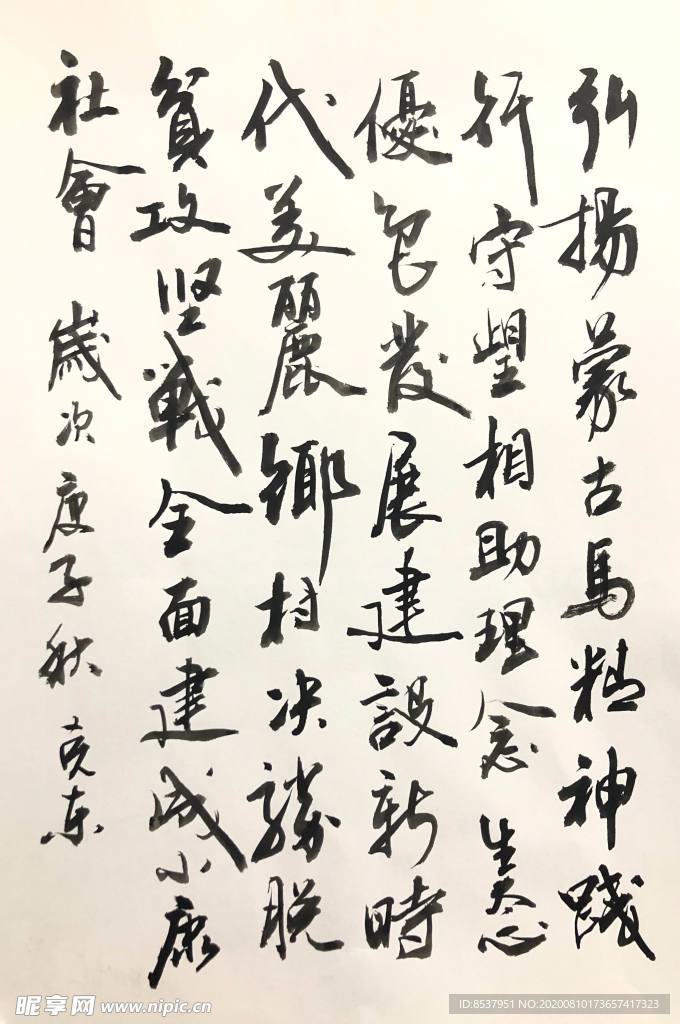 弘揚蒙古馬精神踐
行守望相助理念生态
優包發展建設新時
代美麗鄉村决勝脱
貧攻坚戰全面建成小康
社會 歲次庚子秋 克东
昵享网 www.nipic.cn
ID:8537951 NO:20200810173657417323